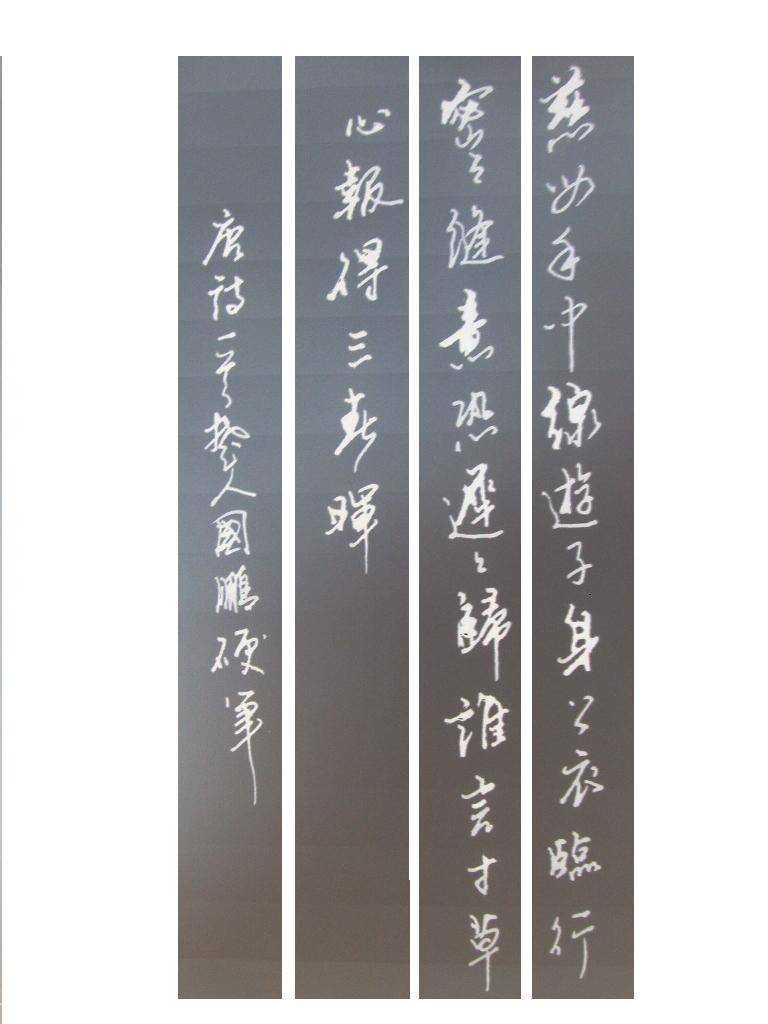 慈母手中線遊子身上衣臨行
密々縫意恐遲々歸誰言寸草
心報得三春暉
唐詩一首楚人國鵬硬筆